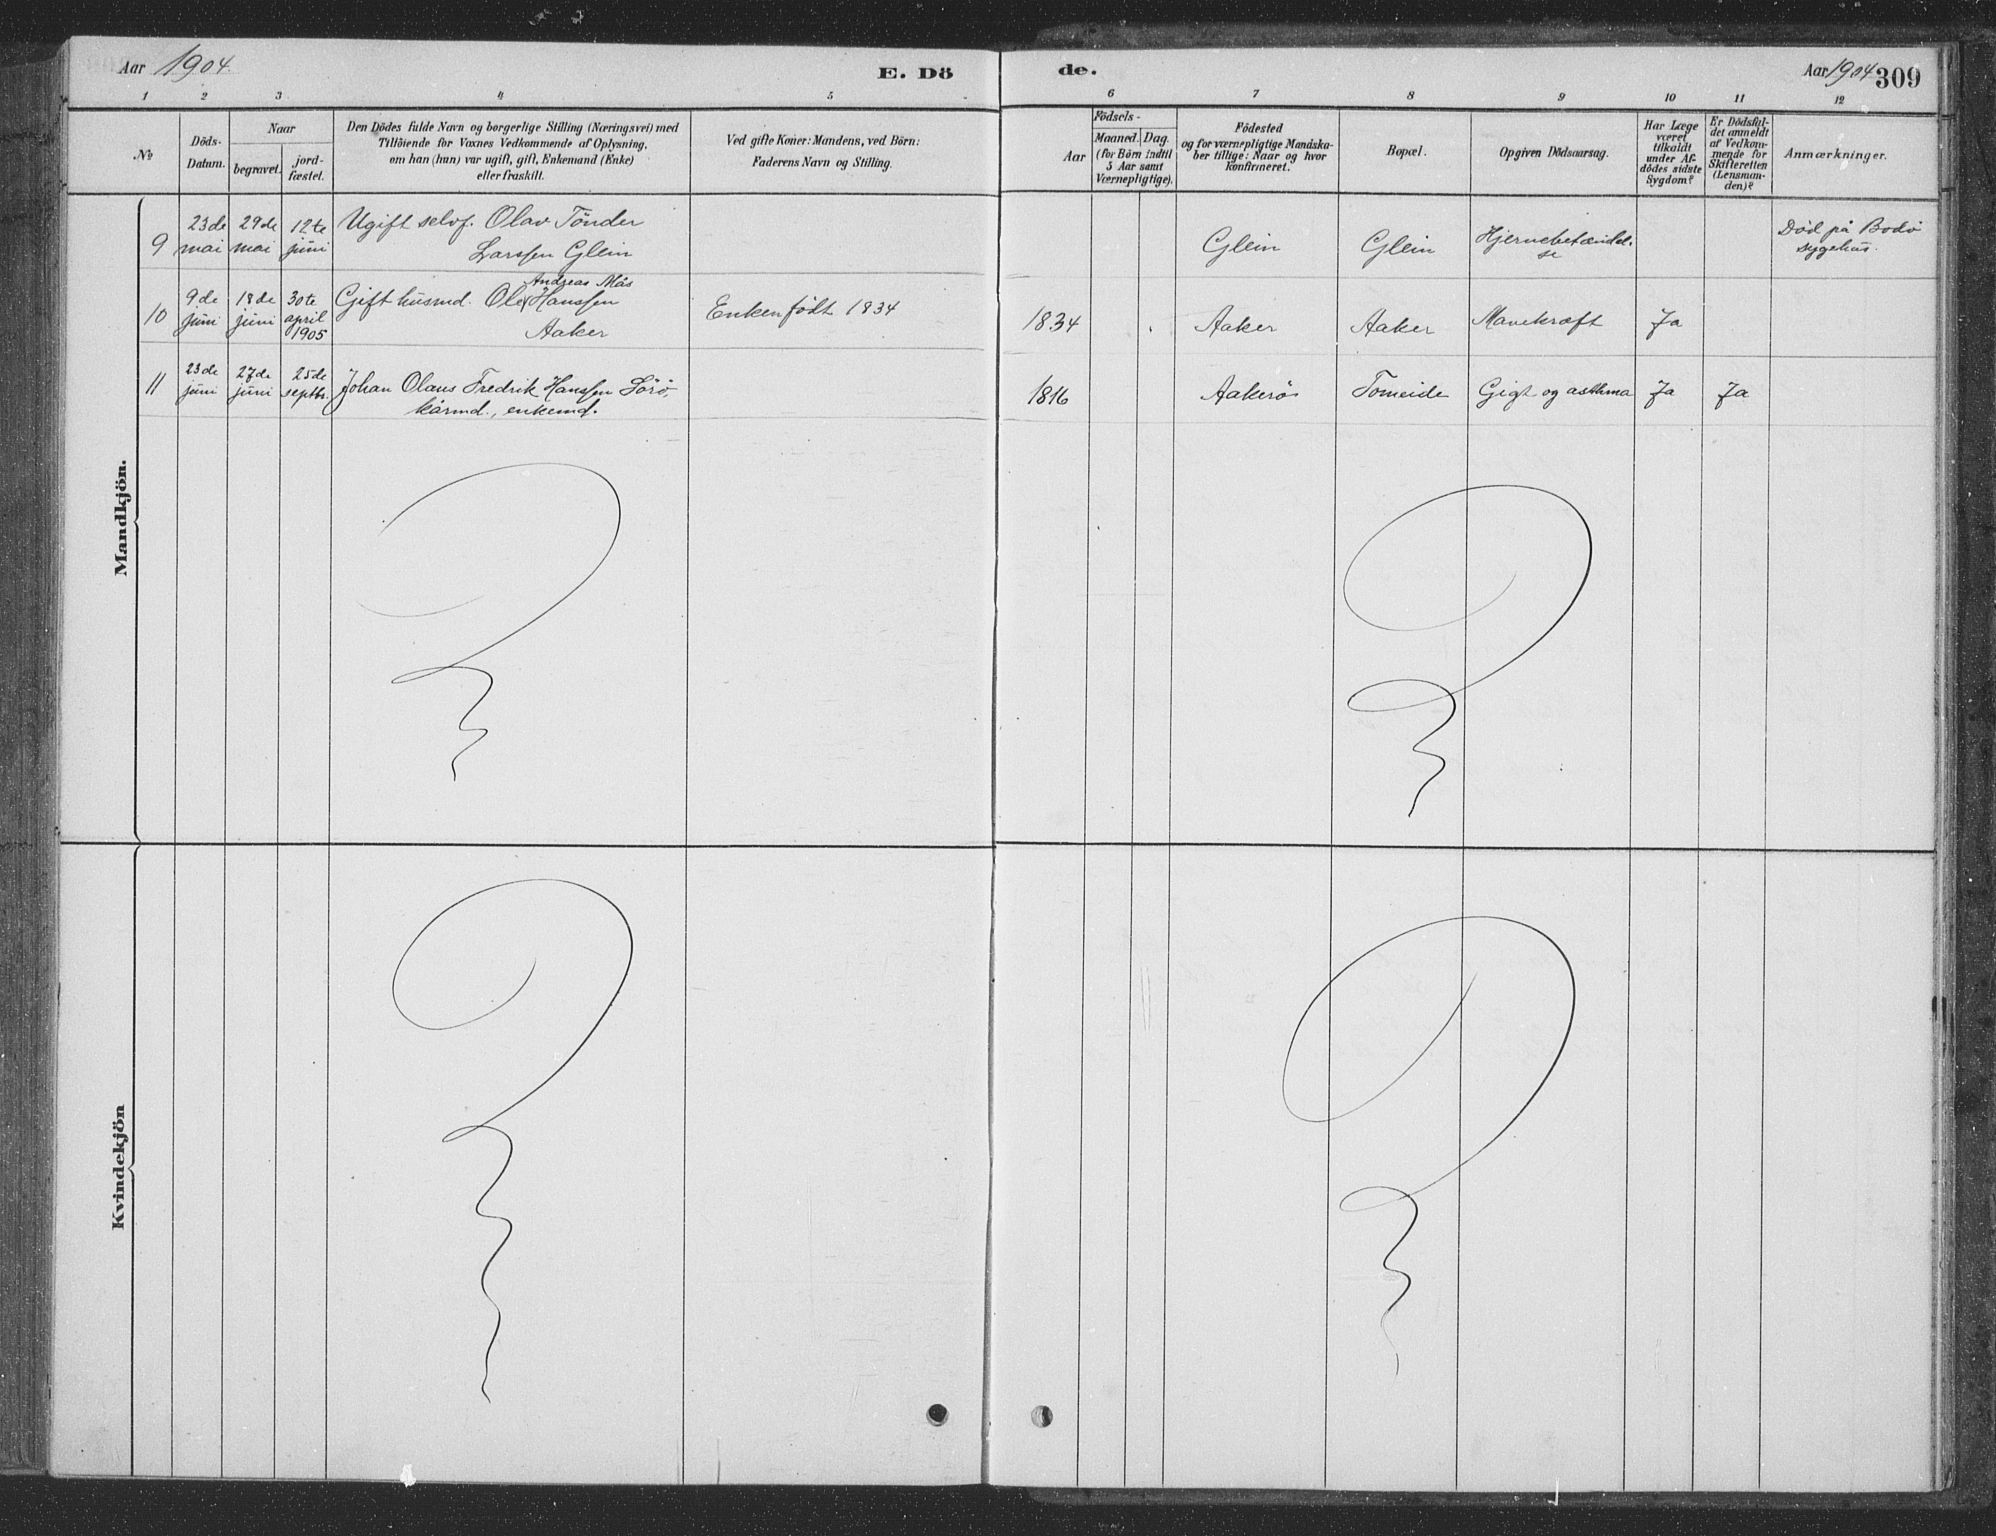 Aar 1904.
E. Dö
de.
Aar 1904 309
1 2 3 4 5
6 7 8 9 10 11 12
No
Döds-
Datum.
Naar
begravet.
jord-
fæstet.
Den Dödes fulde Navn og borgerlige Stilling (Næringsvei) med
Tilföiende for Voxnes Vedkommende af Oplysning,
om han (hun) var ugift, gift, Enkemand (Enke)
eller fraskilt.
Ved gifte Koner: Mandens, ved Börn:
Faderens Navn og Stilling.
Födsels-
Aar
Maaned. Dag.
(for Börn indtil
5 Aar samt
Værnepligtige).
Födested
og for værnepligtige Mandska-
ber tillige: Naar og hvor
konfirmeret.
Bopæl.
Opgiven Dödsaarsag.
Har Læge
været
tilkaldt
under Af-
dödes sidste
Sygdom?
Er Dödsfal-
det anmeldt
af Vedkom-
mende for
Skifteretten
(Lensman-
den)?
Anmærkninger.
Mandkjön.
9
23de
mai
29de
mai
12te
juni
Ugift selvf. Olav Tönder
Larssen Glein
Glein
Glein
Hjernebetændel-
se
Död på Bodö
sygehus.
10
9de
juni
18de
juni
30te
april
1905
Andreas Mås
Gift husmd. Ole Hanssen
Aaker
Enken födt 1834
1834
Aaker
Aaker
Mavekræft
Ja
11
23de
juni
27de
juni
25de
septbr.
Johan Olaus Fredrik Hanssen Sörö,
kårmd., enkemd.
1816
Aakerö
Tomeide
Gigt og asthma
Ja
Ja
Kvindekjön